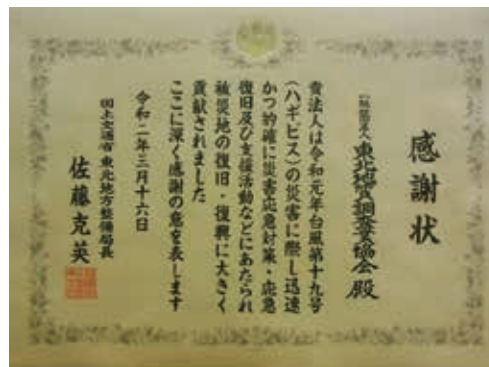 感謝状
一般社団法人 東北地質調査業協会 殿
貴法人は令和元年台風第十九号
（ハギビス）の災害に際し迅速
かつ的確に災害応急対策・応急
復旧及び支援活動などにあたられ
被災地の復旧・復興に大きく
貢献されました
ここに深く感謝の意を表します
令和二年三月十六日
国土交通省 東北地方整備局長
佐藤克英